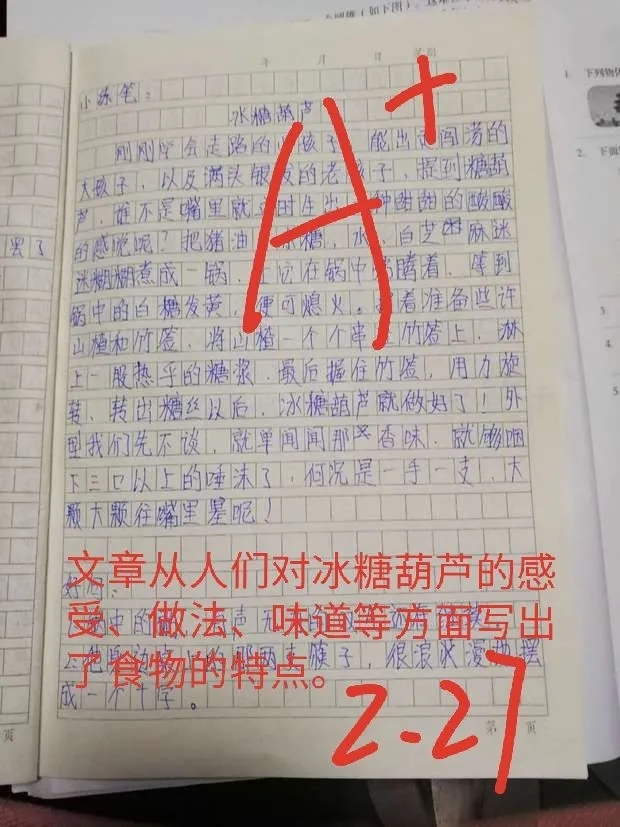 小练笔:
冰糖葫芦
刚刚学会走路的小孩子 能出去闯荡的
大孩子，以及满头银发的老孩子，提到糖葫
芦，谁不是嘴里就立时生出一种甜甜的酸酸
的感觉呢？把猪油、冰糖，水，白芝麻迷
迷糊糊煮成一锅，让它在锅中 腾着，等到
锅中的白糖发黄，便可熄火。 着准备些许
山楂和竹签，将山楂一个个串 竹签上，淋
上一股热乎的糖浆，最后握住竹签，用力旋
转、转出糖丝以后，冰糖葫芦就做好了！外
我们先不谈，就单闻闻那 香味，就够咽
下三口以上的唾沫了，何况是一手一支，大
颗大颗往嘴里 呢！
文章从人们对冰糖葫芦的感
受、做法、味道等方面写出
了食物的特点。
锅中的 声
筷子，很浪 漫地摆
成一个十字。
A+
2-27
罢了
年 月 日
第 页
页
(如下图)
1. 下列物
2. 下面
3.
4.
5